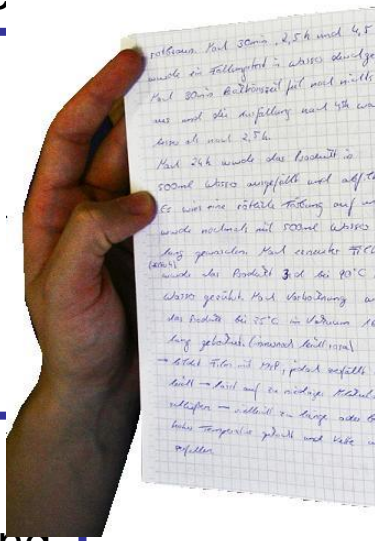 rotbraun. Nach 30min, 2,5h und 4,5
wurde ein Fällungstest in Wasser durchge
Nach 30min Reaktionszeit fiel noch nichts
aus und die Ausfällung nach 4½h wa
besser als nach 2,5h.
Nach 24h wurde das Produkt in
500ml Wasser ausgefällt und abfilt
Es wies eine rötliche Färbung auf un
wurde nochmals mit 500ml Wasser
lang gewaschen. Nach erneuter
wurde das Produkt 3d bei 90°C
Wasser gerührt. Nach
das Produkt bei 75°C im Vakuum 16
lang getrocknet
→ bildet Film mit NMP, jedoch zerfällt
leicht → lässt auf zu niedriges
schließen → vielleicht zu lange oder
hoher Temperatur gekocht und Kette
zerfallen